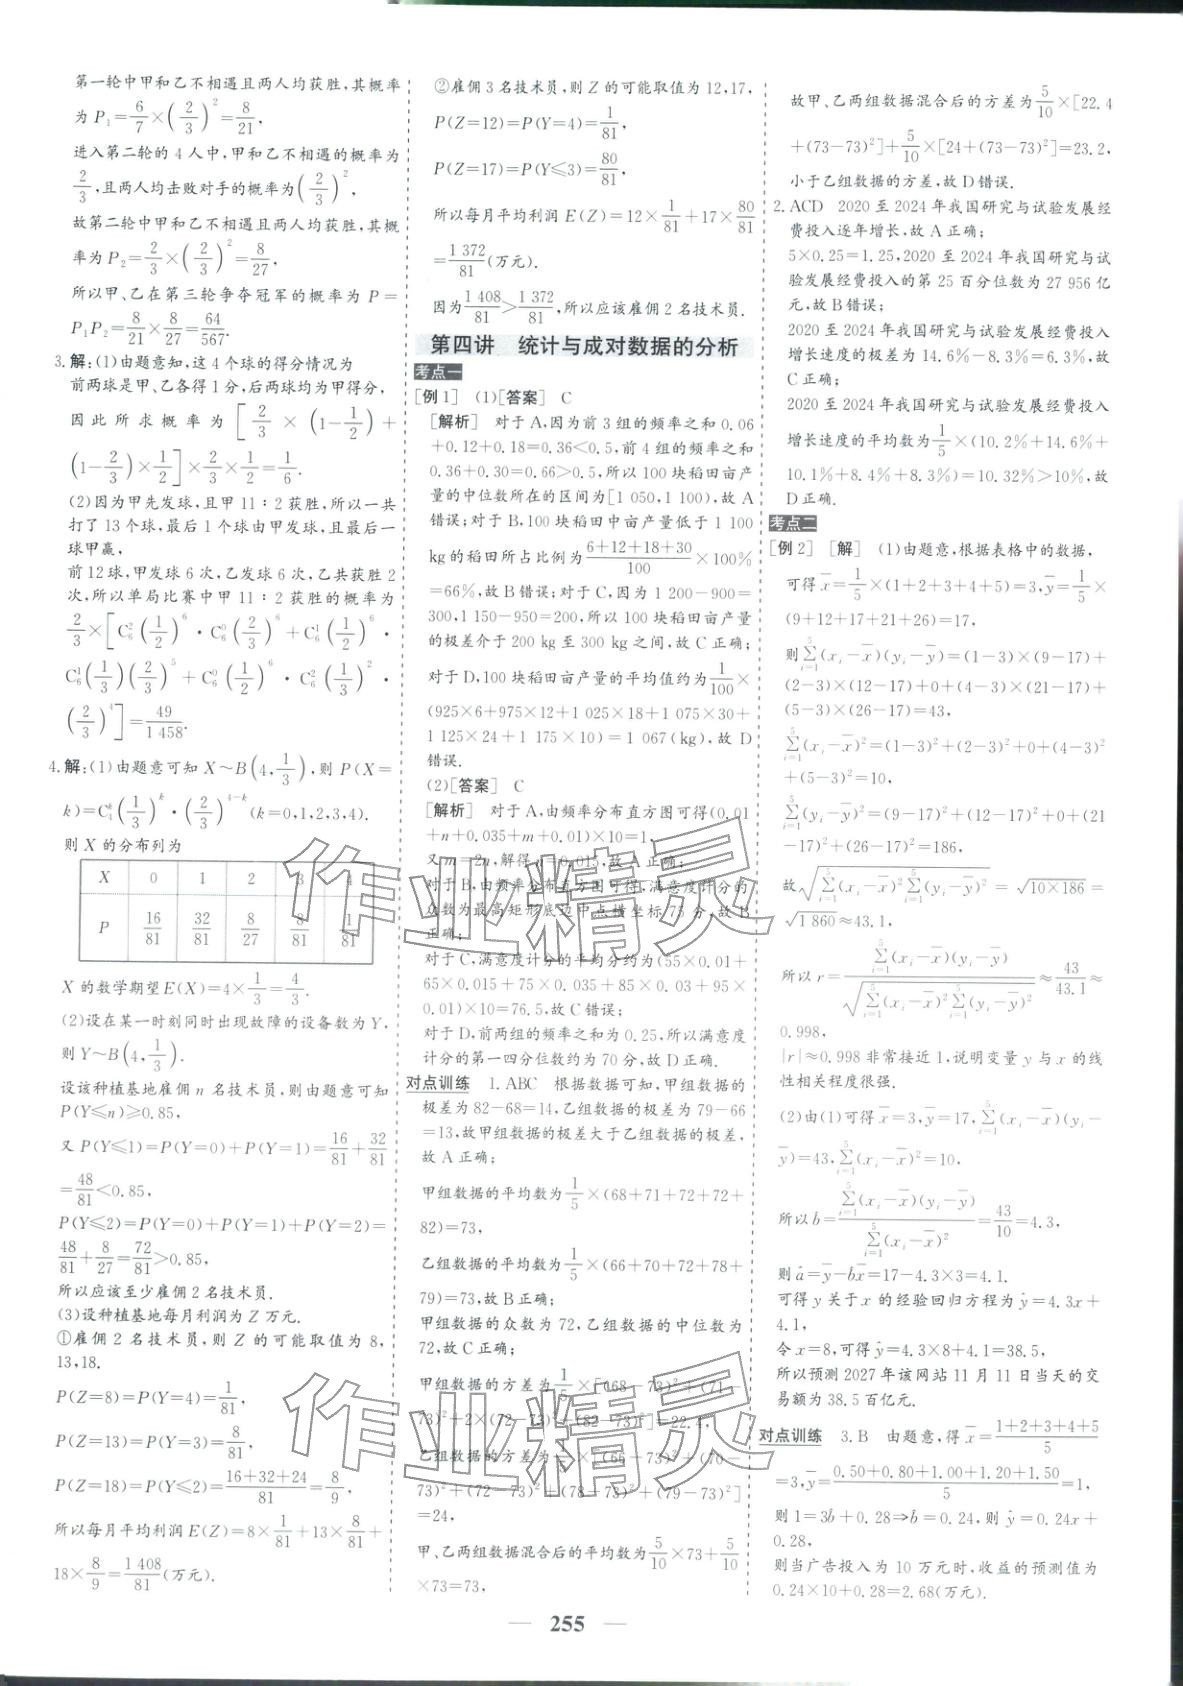 第一轮中甲和乙不相遇且两人均获胜,其概率
为 P₁=6/7×(2/3)²=8/21,
进入第二轮的 4 人中,甲和乙不相遇的概率为
2/3,且两人均击败对手的概率为(2/3)²,
故第二轮中甲和乙不相遇且两人均获胜,其概
率为 P₂=2/3×(2/3)²=8/27,
所以甲、乙在第三轮争夺冠军的概率为 P=
P₁P₂=8/21×8/27=64/567.
3.解:(1)由题意知,这 4 个球的得分情况为
前两球是甲、乙各得 1 分,后两球均为甲得分,
因此所求概率为[2/3×(1-1/2)+
(1-2/3)×1/2]×2/3×1/2=1/6.
(2)因为甲先发球,且甲 11∶2 获胜,所以一共
打了 13 个球,最后 1 个球由甲发球,且最后一
球甲赢,
前 12 球,甲发球 6 次,乙发球 6 次,乙共获胜 2
次,所以单局比赛中甲 11∶2 获胜的概率为
2/3×[C₆²(1/2)⁶·C₆⁰(2/3)⁶+C₆¹(1/2)⁶·
C₆¹(1/3)(2/3)⁵+C₆⁰(1/2)⁶·C₆²(1/3)²·
(2/3)⁴]=49/1 458.
4.解:(1)由题意可知 X~B(4,1/3),则 P(X=
k)=C₄ᵏ(1/3)ᵏ·(2/3)⁴⁻ᵏ(k=0,1,2,3,4).
则 X 的分布列为
X 0 1 2 3 4
P 16/81 32/81 8/27 8/81 1/81
X 的数学期望 E(X)=4×1/3=4/3.
(2)设在某一时刻同时出现故障的设备数为 Y,
则 Y~B(4,1/3).
设该种植基地雇佣 n 名技术员,则由题意可知
P(Y≤n)≥0.85,
又 P(Y≤1)=P(Y=0)+P(Y=1)=16/81+32/81
=48/81<0.85,
P(Y≤2)=P(Y=0)+P(Y=1)+P(Y=2)=
48/81+8/27=72/81>0.85,
所以应该至少雇佣 2 名技术员.
(3)设种植基地每月利润为 Z 万元.
①雇佣 2 名技术员,则 Z 的可能取值为 8,
13,18.
P(Z=8)=P(Y=4)=1/81,
P(Z=13)=P(Y=3)=8/81,
P(Z=18)=P(Y≤2)=16+32+24/81=8/9,
所以每月平均利润 E(Z)=8×1/81+13×8/81+
18×8/9=1 408/81(万元).
②雇佣 3 名技术员,则 Z 的可能取值为 12,17,
P(Z=12)=P(Y=4)=1/81,
P(Z=17)=P(Y≤3)=80/81,
所以每月平均利润 E(Z)=12×1/81+17×80/81
=1 372/81(万元).
因为1 408/81>1 372/81,所以应该雇佣 2 名技术员.
第四讲 统计与成对数据的分析
考点一
[例 1] (1)[答案] C
[解析] 对于 A,因为前 3 组的频率之和 0.06
+0.12+0.18=0.36<0.5,前 4 组的频率之和
0.36+0.30=0.66>0.5,所以 100 块稻田亩产
量的中位数所在的区间为[1 050,1 100),故 A
错误;对于 B,100 块稻田中亩产量低于 1 100
kg 的稻田所占比例为6+12+18+30/100×100%
=66%,故 B 错误;对于 C,因为 1 200-900=
300,1 150-950=200,所以 100 块稻田亩产量
的极差介于 200 kg 至 300 kg 之间,故 C 正确;
对于 D,100 块稻田亩产量的平均值约为1/100×
(925×6+975×12+1 025×18+1 075×30+
1 125×24+1 175×10)=1 067(kg),故 D
错误.
(2)[答案] C
[解析] 对于 A,由频率分布直方图可得(0.01
+n+0.035+m+0.01)×10=1,
又 m=2n,解得 n=0.015,故 A 正确;
对于 B,由频率分布直方图可得,满意度计分的
众数为最高矩形底边中点横坐标 75 分,故 B
正确;
对于 C,满意度计分的平均分约为(55×0.01+
65×0.015+75×0.035+85×0.03+95×
0.01)×10=76.5,故 C 错误;
对于 D,前两组的频率之和为 0.25,所以满意度
计分的第一四分位数约为 70 分,故 D 正确.
对点训练 1.ABC 根据数据可知,甲组数据的
极差为 82-68=14,乙组数据的极差为 79-66
=13,故甲组数据的极差大于乙组数据的极差,
故 A 正确;
甲组数据的平均数为1/5×(68+71+72+72+
82)=73,
乙组数据的平均数为1/5×(66+70+72+78+
79)=73,故 B 正确;
甲组数据的众数为 72,乙组数据的中位数为
72,故 C 正确;
甲组数据的方差为1/5×[(68-73)²+(71-
73)²+2×(72-73)²+(82-73)²]=22.4,
乙组数据的方差为1/5×[(66-73)²+(70-
73)²+(72-73)²+(78-73)²+(79-73)²]
=24,
甲、乙两组数据混合后的平均数为5/10×73+5/10
×73=73,
故甲、乙两组数据混合后的方差为5/10×[22.4
+(73-73)²]+5/10×[24+(73-73)²]=23.2,
小于乙组数据的方差,故 D 错误.
2.ACD 2020 至 2024 年我国研究与试验发展经
费投入逐年增长,故 A 正确;
5×0.25=1.25,2020 至 2024 年我国研究与试
验发展经费投入的第 25 百分位数为 27 956 亿
元,故 B 错误;
2020 至 2024 年我国研究与试验发展经费投入
增长速度的极差为 14.6%-8.3%=6.3%,故
C 正确;
2020 至 2024 年我国研究与试验发展经费投入
增长速度的平均数为1/5×(10.2%+14.6%+
10.1%+8.4%+8.3%)=10.32%>10%,故
D 正确.
考点二
[例 2] [解] (1)由题意,根据表格中的数据,
可得x̄=1/5×(1+2+3+4+5)=3,ȳ=1/5×
(9+12+17+21+26)=17,
则∑⁵ᵢ₌₁(xᵢ-x̄)(yᵢ-ȳ)=(1-3)×(9-17)+
(2-3)×(12-17)+0+(4-3)×(21-17)+
(5-3)×(26-17)=43,
∑⁵ᵢ₌₁(xᵢ-x̄)²=(1-3)²+(2-3)²+0+(4-3)²
+(5-3)²=10,
∑⁵ᵢ₌₁(yᵢ-ȳ)²=(9-17)²+(12-17)²+0+(21
-17)²+(26-17)²=186,
故√(∑⁵ᵢ₌₁(xᵢ-x̄)²∑⁵ᵢ₌₁(yᵢ-ȳ)²)=√(10×186)=
√(1 860)≈43.1,
所以 r=∑⁵ᵢ₌₁(xᵢ-x̄)(yᵢ-ȳ)/√(∑⁵ᵢ₌₁(xᵢ-x̄)²∑⁵ᵢ₌₁(yᵢ-ȳ)²)≈43/43.1≈
0.998,
|r|≈0.998 非常接近 1,说明变量 y 与 x 的线
性相关程度很强.
(2)由(1)可得x̄=3,ȳ=17,∑⁵ᵢ₌₁(xᵢ-x̄)(yᵢ-
ȳ)=43,∑⁵ᵢ₌₁(xᵢ-x̄)²=10,
所以b̂=∑⁵ᵢ₌₁(xᵢ-x̄)(yᵢ-ȳ)/∑⁵ᵢ₌₁(xᵢ-x̄)²=43/10=4.3,
则â=ȳ-b̂x̄=17-4.3×3=4.1.
可得 y 关于 x 的经验回归方程为ŷ=4.3x+
4.1,
令 x=8,可得ŷ=4.3×8+4.1=38.5,
所以预测 2027 年该网站 11 月 11 日当天的交
易额为 38.5 百亿元.
对点训练 3.B 由题意,得x̄=1+2+3+4+5/5
=3,ȳ=0.50+0.80+1.00+1.20+1.50/5=1,
则 1=3b̂+0.28⇒b̂=0.24,则ŷ=0.24x+
0.28,
则当广告投入为 10 万元时,收益的预测值为
0.24×10+0.28=2.68(万元).
255
作业精灵
作业精灵